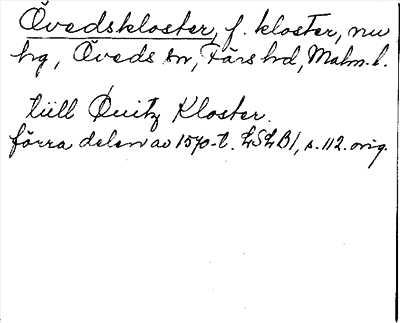 Övedskloster, f. kloster, nu
hg, Öveds sn, Färs hd, Malm. l.
tiill Øuitz Kloster.
förra delen av 1570-t. LSLB1, s. 112. orig.